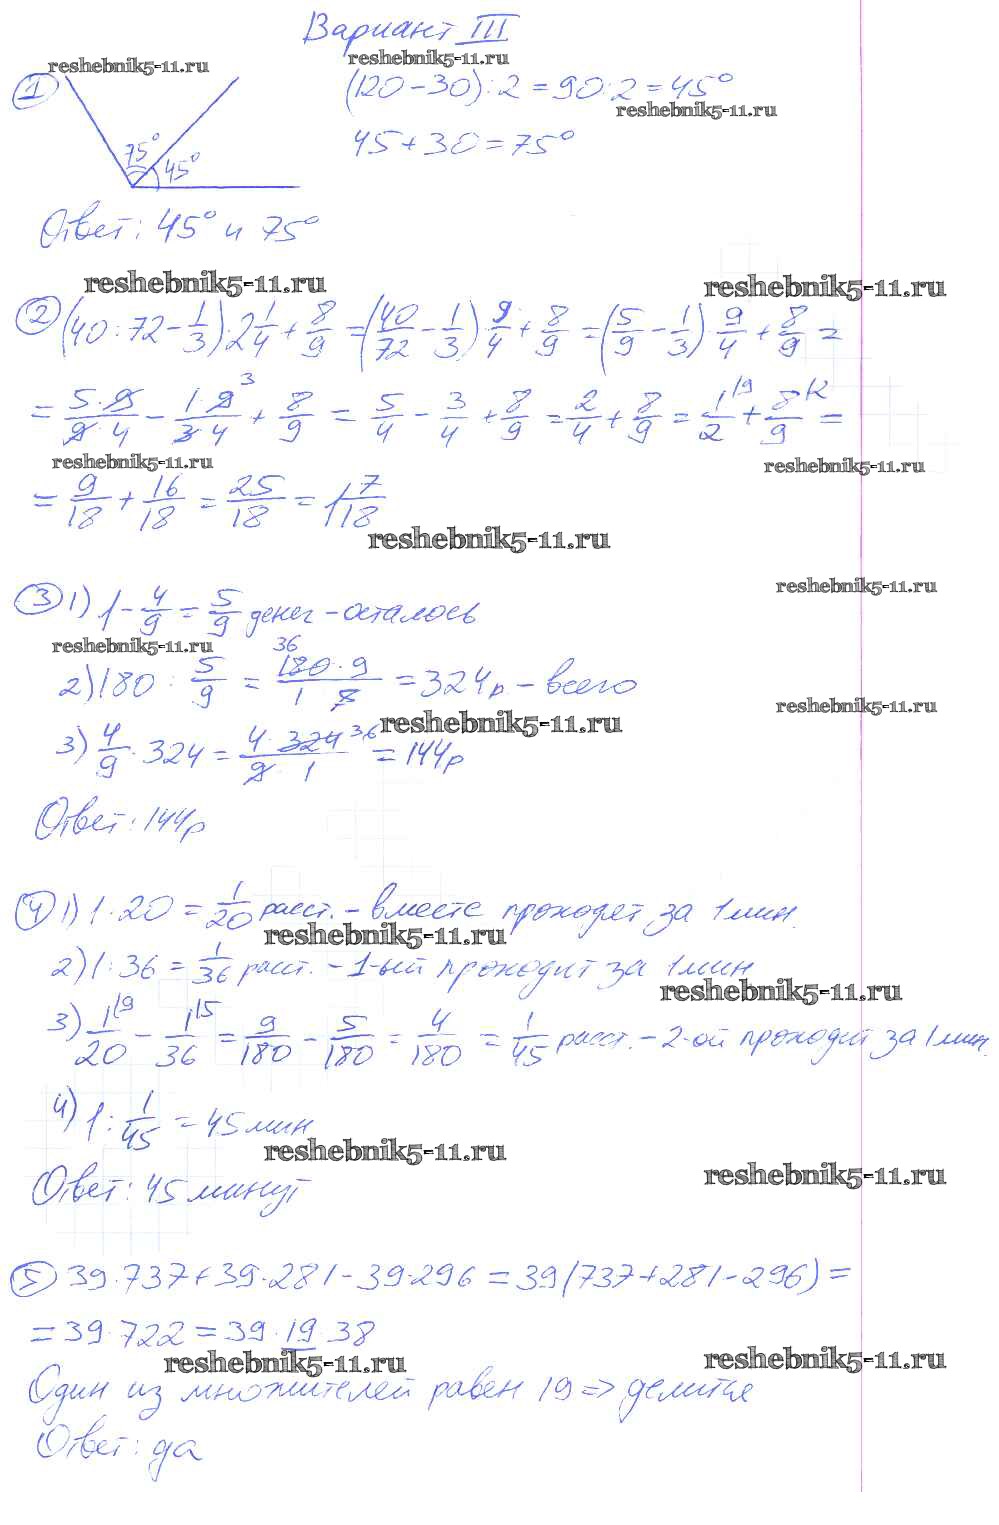 Вариант III
reshebnik5-11.ru
reshebnik5-11.ru
1
(120-30):2=90:2=45°
reshebnik5-11.ru
45+30=75°
75°
45°
Ответ: 45° и 75°
reshebnik5-11.ru
reshebnik5-11.ru
2 (40:72-1/3)·2 1/4+8/9=(40/72-1/3)·9/4+8/9=(5/9-1/3)·9/4+8/9=
=5·9/9·4-1·9 3/3·4+8/9=5/4-3/4+8/9=2/4+8/9=1/2 |9+8/9 |2=
reshebnik5-11.ru
reshebnik5-11.ru
=9/18+16/18=25/18=1 7/18
reshebnik5-11.ru
reshebnik5-11.ru
3 1) 1-4/9=5/9 денег-осталось
reshebnik5-11.ru
2) 180:5/9=36 180·9/1·5=324р-всего
reshebnik5-11.ru
reshebnik5-11.ru
3) 4/9·324=4·324 36/9·1=144р
Ответ: 144р
4 1) 1:20=1/20 расст.-вместе проходят за 1мин.
reshebnik5-11.ru
2) 1:36=1/36 расст.-1-ый проходит за 1мин
reshebnik5-11.ru
3) 1/20 |9-1/36 |5=9/180-5/180=4/180=1/45 расст.-2-ой проходит за 1мин.
4) 1:1/45=45мин
reshebnik5-11.ru
reshebnik5-11.ru
Ответ: 45 минут
5 39·737+39·281-39·296=39(737+281-296)=
=39·722=39·19·38
reshebnik5-11.ru
reshebnik5-11.ru
Один из множителей равен 19=>делится
Ответ: да